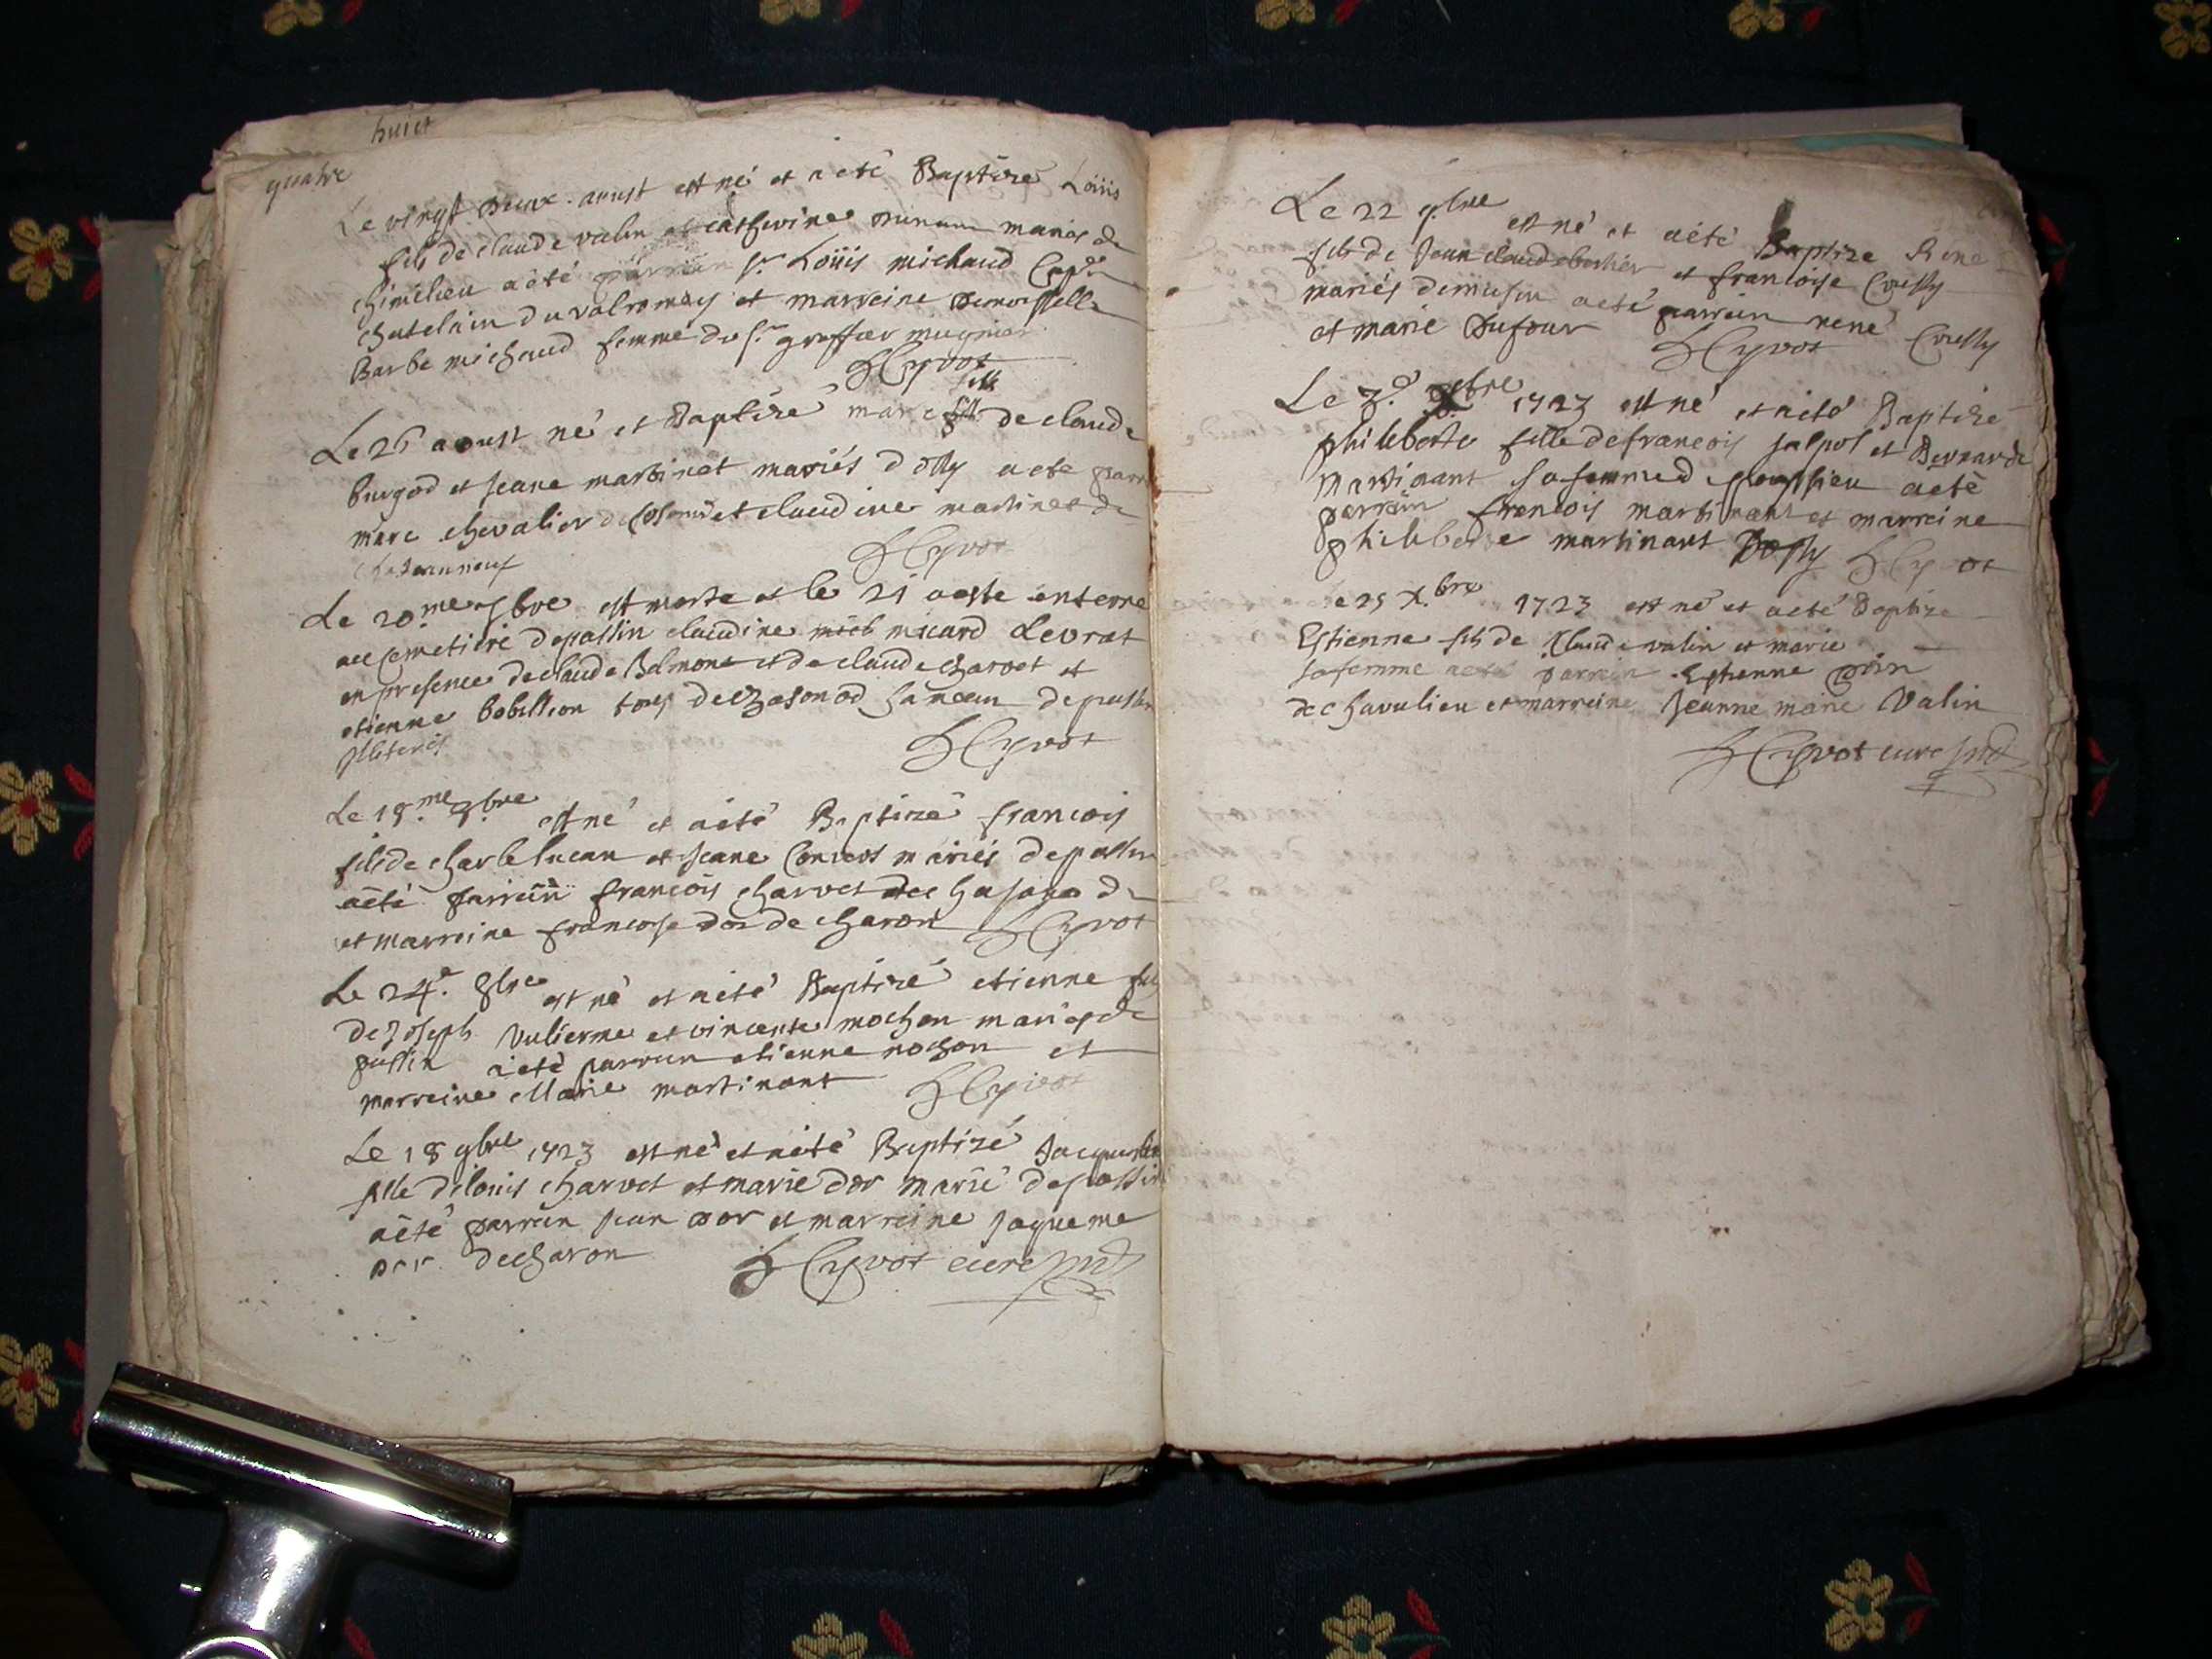 huict
quatre
Le vingt deux aoust est né et a eté Baptize Loüis
fils de claude valin et catherine mariés de
chimilieu a été parrain Sr Loüis michaud Capne
chatelain du valromey et marreine Demoiselle
Barbe michaud femme du Sr greffier mugnier
HCyvot
Le 26 aoust né et Baptizé marc fille de claude
burgod et Jeane martinet mariés d'ossy a ete parr
marc chevalier de et claudine martinet de
chateauneuf
HCyvot
Le 20.me 7bre est morte et le 21 a este enterre
au cemetiere de passin claudine micard Levrat
en presence de claude Belmont et de claude charvet et
etienne bobillion tous de chasonod hameau de passin
illiteres
HCyvot
Le 18.me 8.bre est né et a eté Baptizé francois
fils de charle lucan et Jeane Convert mariés de passin
a été parrain francois charvet de chasono d
et marreine francoise dor de charon HCyvot
Le 24.e 8bre est né et a eté Baptizé etienne fils
de Joseph Vulierme et vincente mochon mariés de
passin a eté parrain etienne mochon et
marreine Marie martinant HCyvot
Le 18 9bre 1723 est né et a eté Baptizé Jacqueline
fille de louis charvet et marie dor marié de passin
a été parrain Jean dor et marreine Jaqueme
dor de charon HCyvot curé
Le 22 9.bre est né et a été Baptize Rene
fils de Jean claude berthier et francoise Cressy
mariés de a été parrain rené Cressy
et marie Dufour HCyvot
Le 3.e Xbre 1723 est né et a eté Baptizé
philiberte fille de francois Jalpot et Bernarde
Martinant sa femme de poussieu a eté
parrain francois martinant et marreine
philiberte martinant Dossy HCyvot
Le 25 X.bre 1723 est né et a eté Baptize
Estienne fils de Claude valin et marie
sa femme a eté parrain Estienne
de chavulieu et marreine Jeanne marie Valin
HCyvot curé